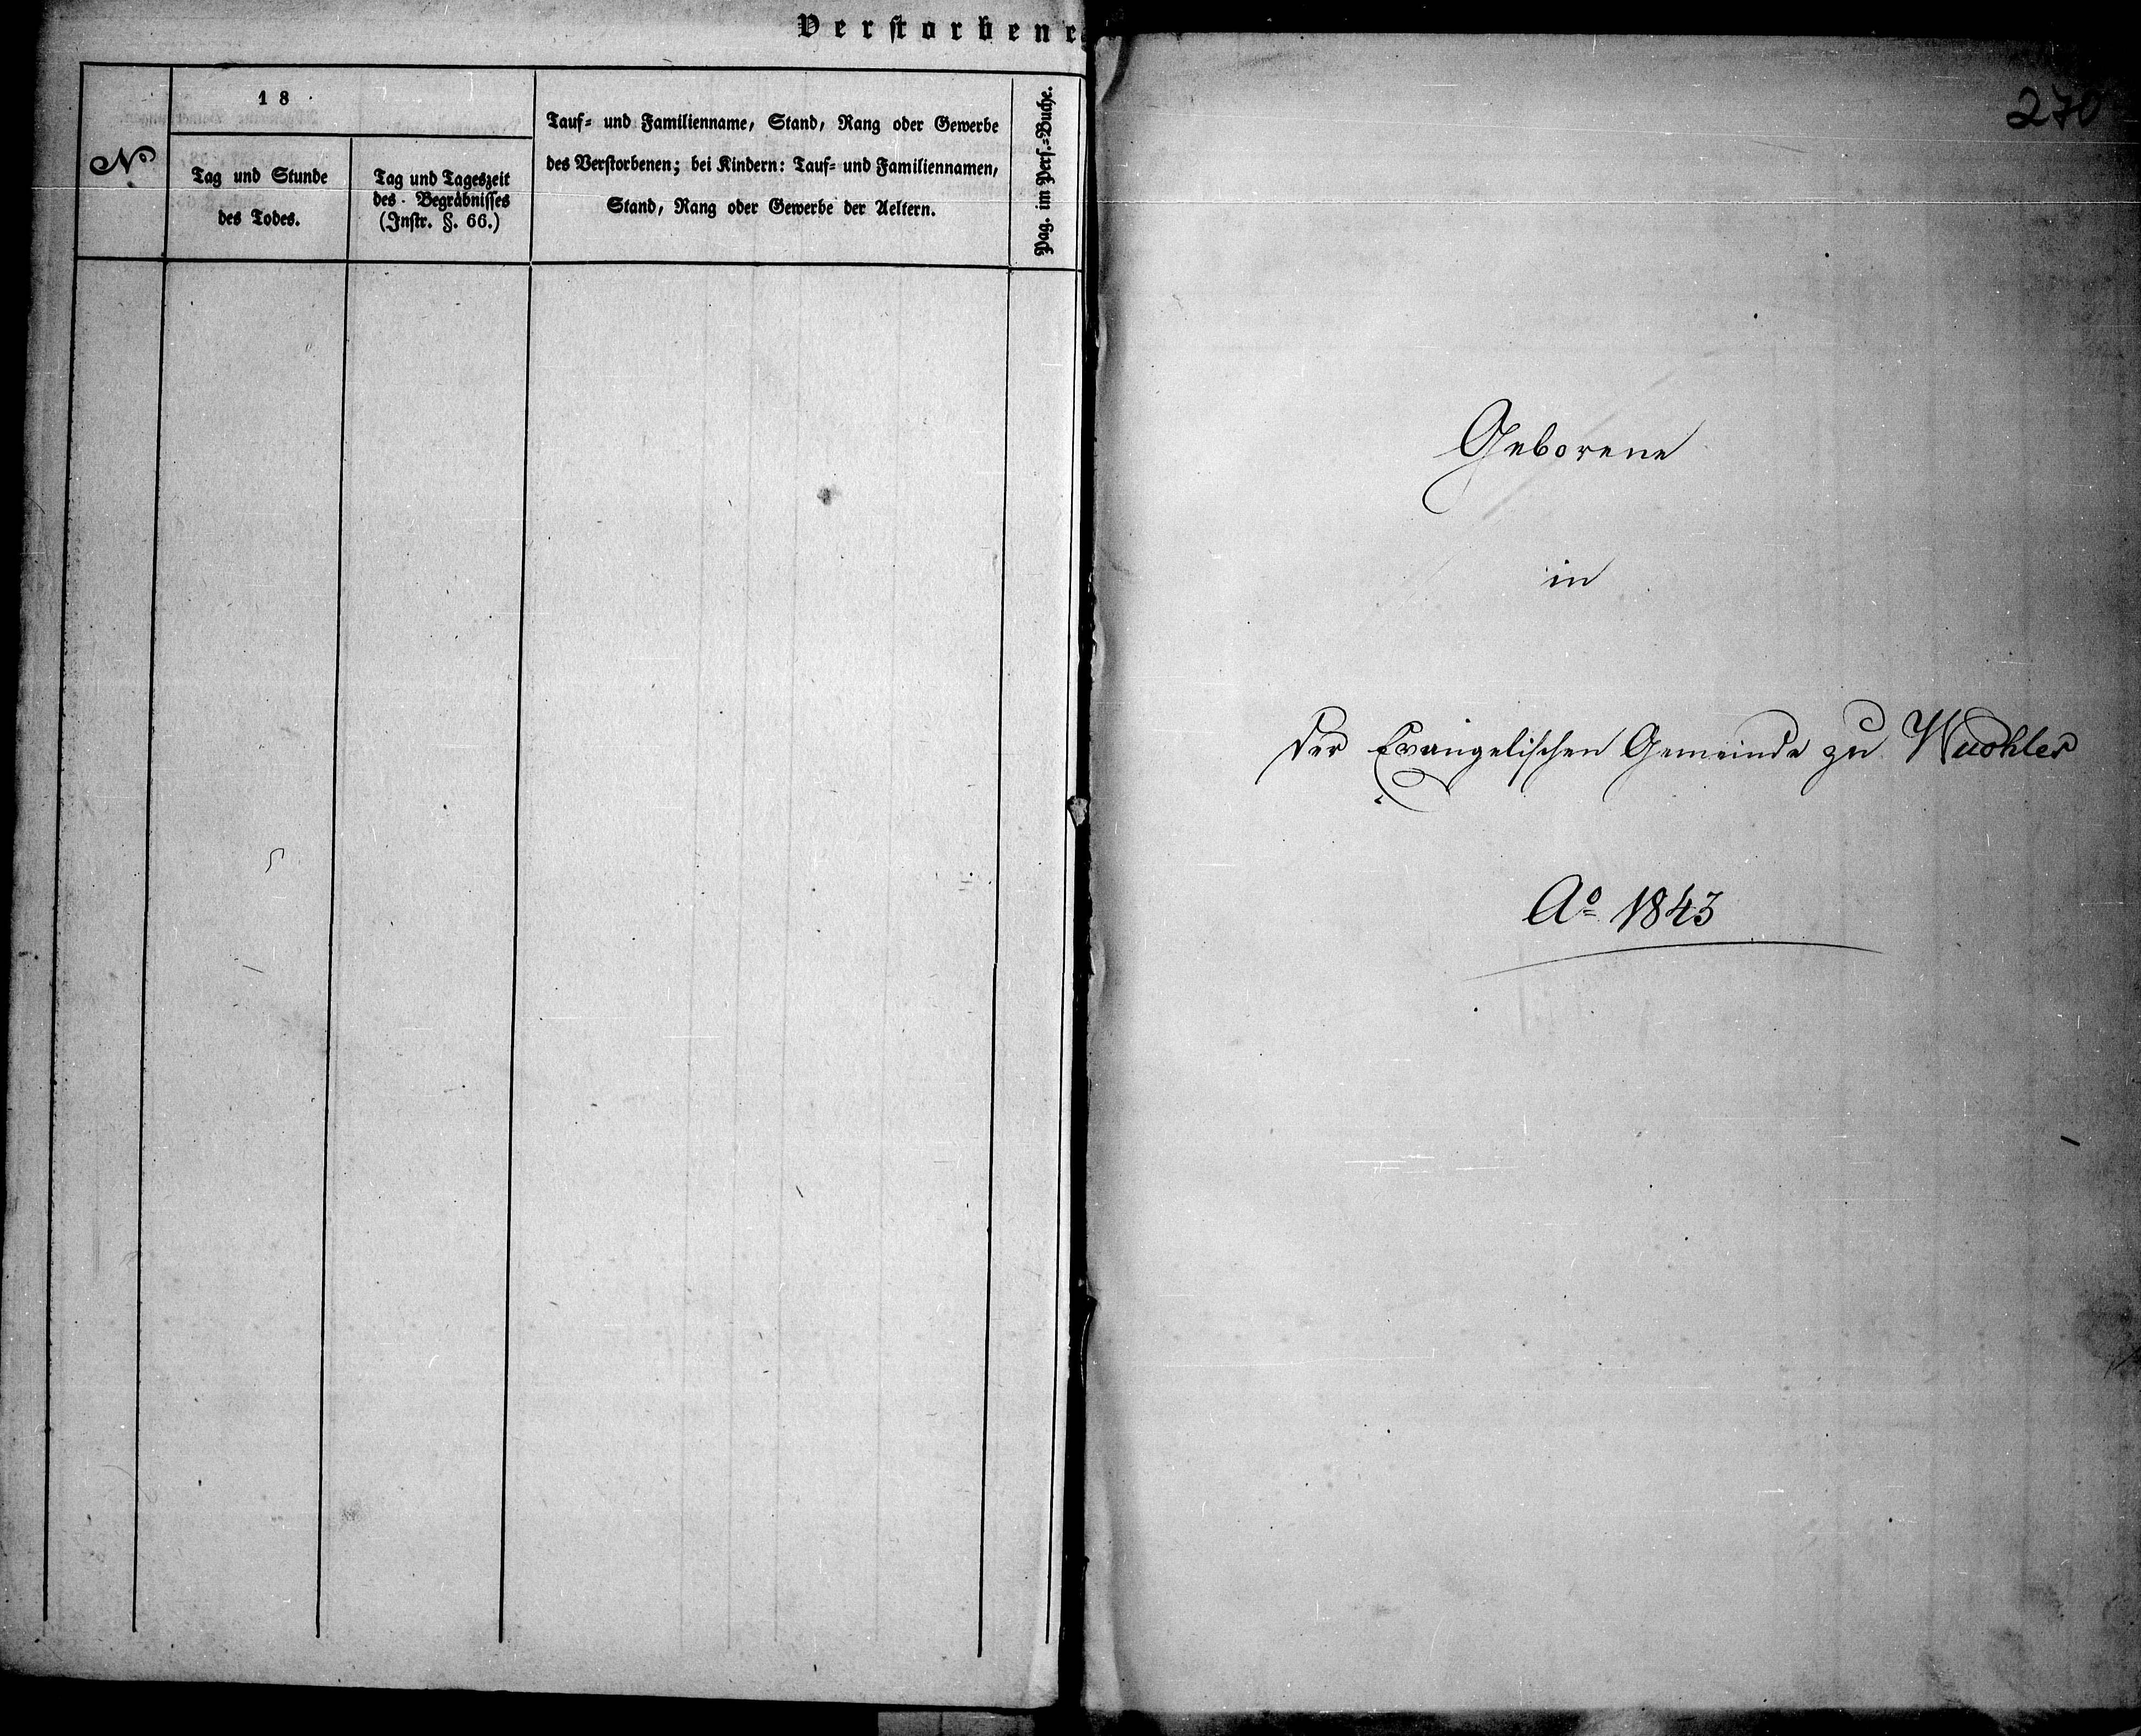 Verstorbene
№
18
Tag und Stunde
des Todes.
Tag und Tageszeit
des Begräbnisses
(Instr. §. 66.)
Tauf- und Familienname, Stand, Rang oder Gewerbe
des Verstorbenen; bei Kindern: Tauf- und Familiennamen,
Stand, Rang oder Gewerbe der Aeltern.
Pag. im Pers.-Buche.
270
Geborene
in
der Evangelischen Gemeinde zu
Ao 1843